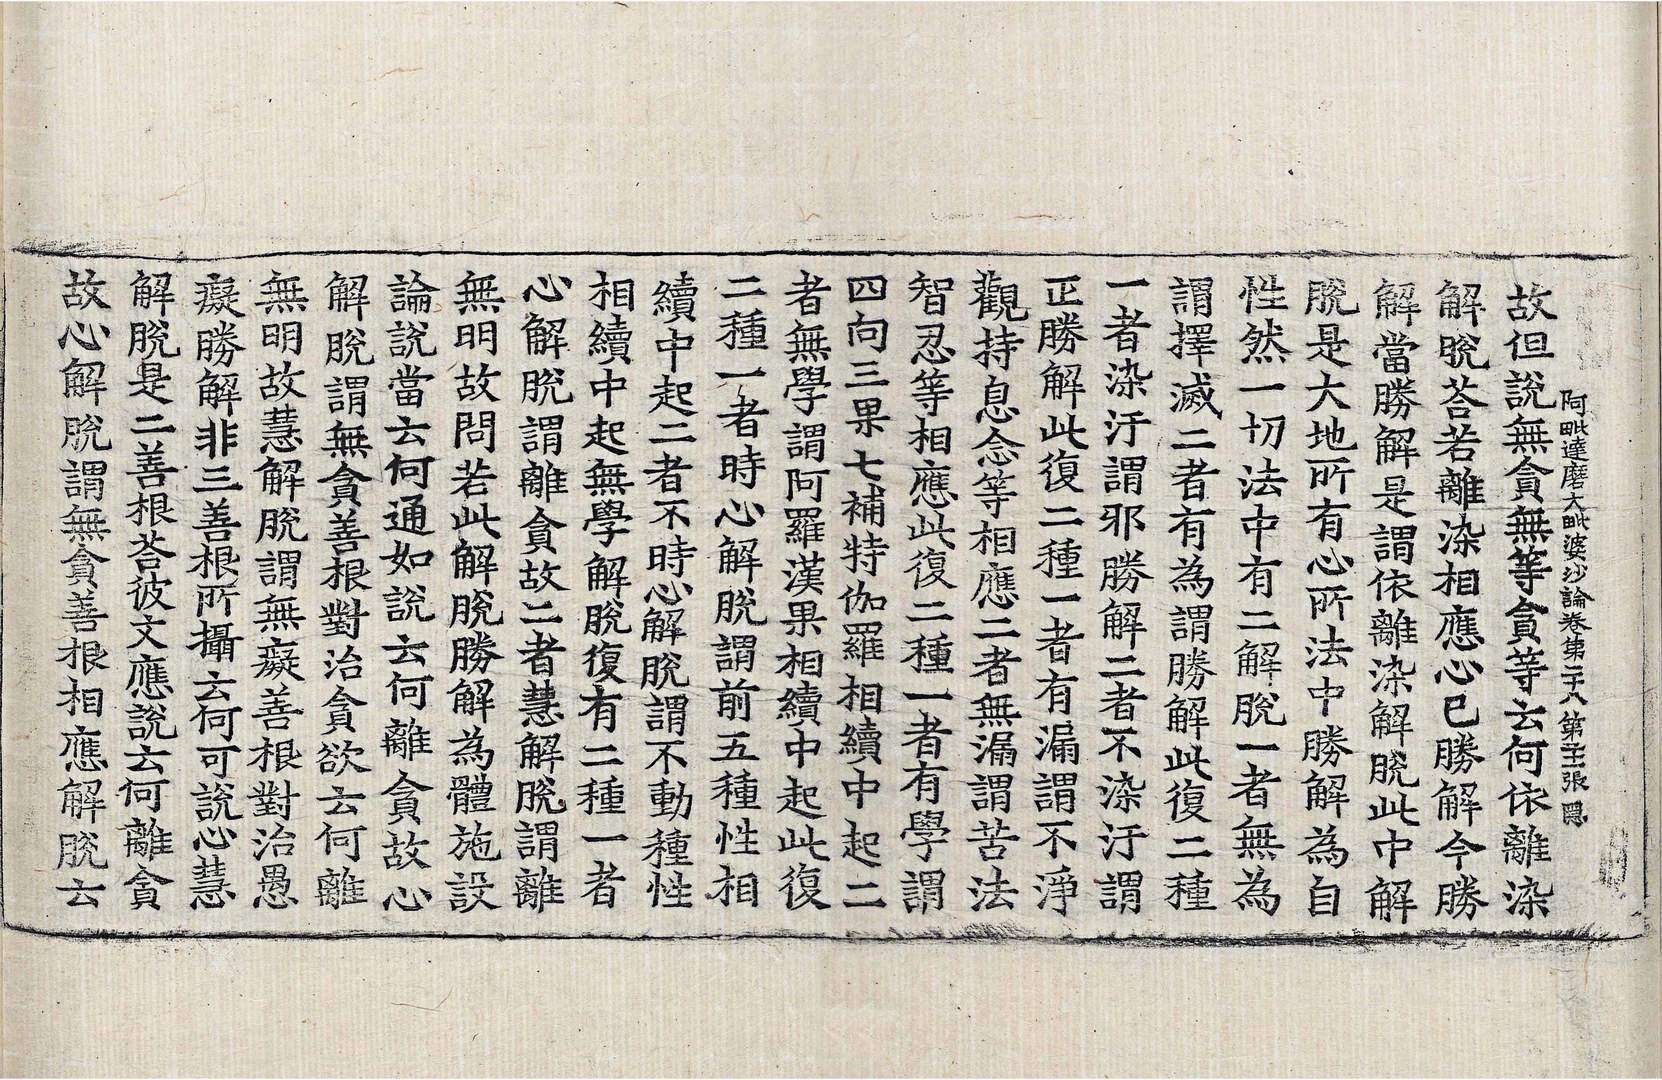 阿毗達磨大毗婆沙論卷第二十八 第五張 隱
故但說無貪無等貪等云何依離染
解脫荅若離染相應心已勝解今勝
解當勝解是謂依離染解脫此中解
脫是大地所有心所法中勝解為自
性然一切法中有二解脫一者無為
謂擇滅二者有為謂勝解此復二種
一者染汙謂邪勝解二者不染汙謂
正勝解此復二種一者有漏謂不淨
觀持息念等相應二者無漏謂苦法
智忍等相應此復二種一者有學謂
四向三果七補特伽羅相續中起二
者無學謂阿羅漢果相續中起此復
二種一者時心解脫謂前五種性相
續中起二者不時心解脫謂不動種性
相續中起無學解脫復有二種一者
心解脫謂離貪故二者慧解脫謂離
無明故問若此解脫勝解為體施設
論說當云何通如說云何離貪故心
解脫謂無貪善根對治貪欲云何離
無明故慧解脫謂無癡善根對治愚
癡勝解非三善根所攝云何可說心慧
解脫是二善根荅彼文應說云何離貪
故心解脫謂無貪善根相應解脫云